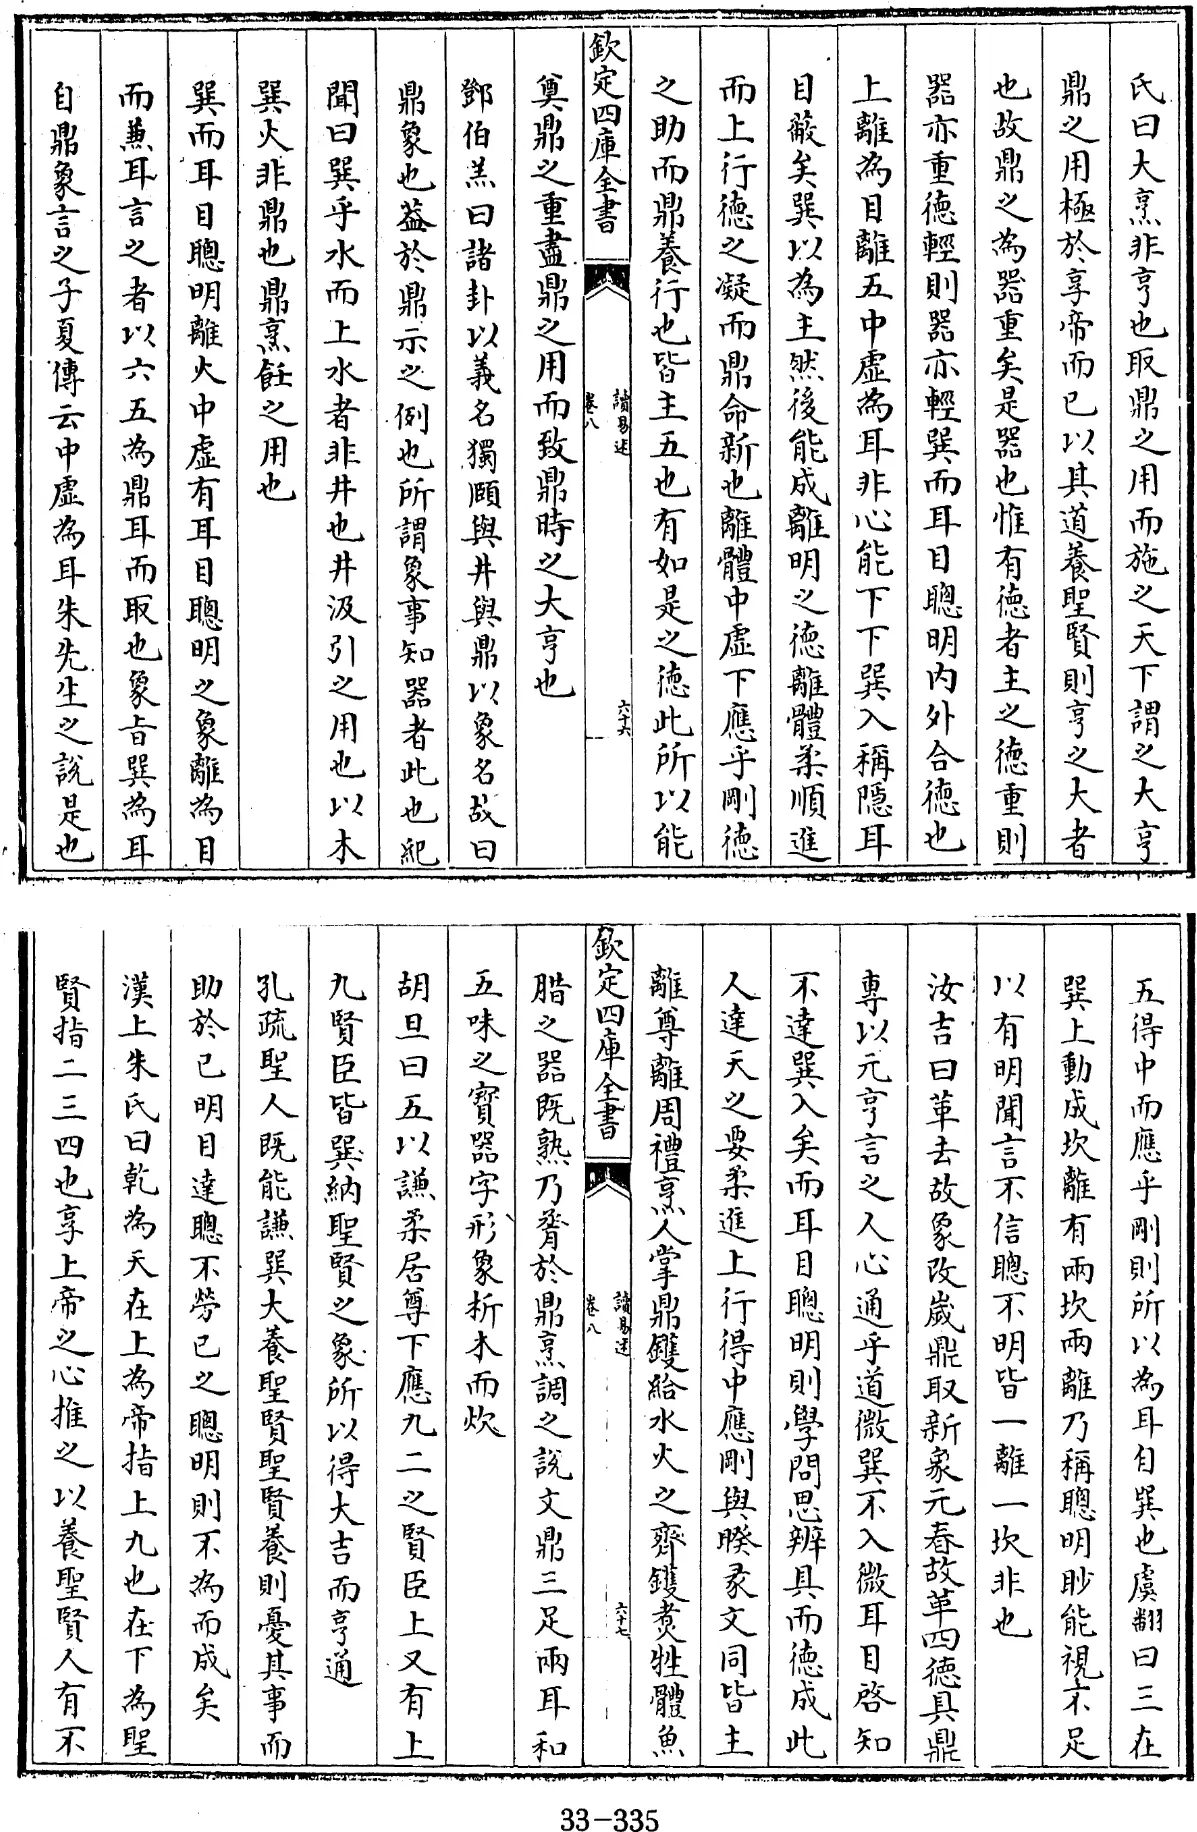 氏曰大烹非亨也取鼎之用而施之天下謂之大亨
鼎之用極於享帝而已以其道養聖賢則亨之大者
也故鼎之為器重矣是器也惟有德者主之德重則
器亦重德輕則器亦輕巽而耳目聰明内外合德也
上離為目離五中虚為耳非心能下下巽入稱隠耳
目蔽矣巽以為主然後能成離明之德離體柔順進
而上行德之凝而鼎命新也離體中虚下應乎剛德
之助而鼎養行也皆主五也有如是之德此所以能
欽定四庫全書
讀易述
卷八
六十六
奠鼎之重盡鼎之用而致鼎時之大亨也
鄧伯羔曰諸卦以義名獨頤與井與鼎以象名故曰
鼎象也葢於鼎示之例也所謂象事知器者此也紀
聞曰巽乎水而上水者非井也井汲引之用也以木
巽火非鼎也鼎烹飪之用也
巽而耳目聰明離火中虚有耳目聰明之象離為目
而兼耳言之者以六五為鼎耳而取也象旨巽為耳
自鼎象言之子夏傳云中虚為耳朱先生之説是也
五得中而應乎剛則所以為耳自巽也虞翻曰三在
巽上動成坎離有兩坎兩離乃稱聰明眇能視不足
以有明聞言不信聰不明皆一離一坎非也
汝吉曰革去故象改嵗鼎取新象元春故革四德具鼎
專以元亨言之人心通乎道微巽不入微耳目啓知
不達巽入矣而耳目聰明則學問思辨具而德成此
人達天之要柔進上行得中應剛與睽彖文同皆主
離尊離周禮烹人掌鼎鑊給水火之齊鑊煑牲體魚
欽定四庫全書
讀易述
卷八
六十七
腊之器既熟乃脀於鼎烹調之説文鼎三足兩耳和
五味之寳器字形象析木而炊
胡旦曰五以謙柔居尊下應九二之賢臣上又有上
九賢臣皆巽納聖賢之象所以得大吉而亨通
孔疏聖人既能謙巽大養聖賢聖賢養則憂其事而
助於已明目達聰不勞已之聰明則不為而成矣
漢上朱氏曰乾為天在上為帝指上九也在下為聖
賢指二三四也享上帝之心推之以養聖賢人有不
33-335